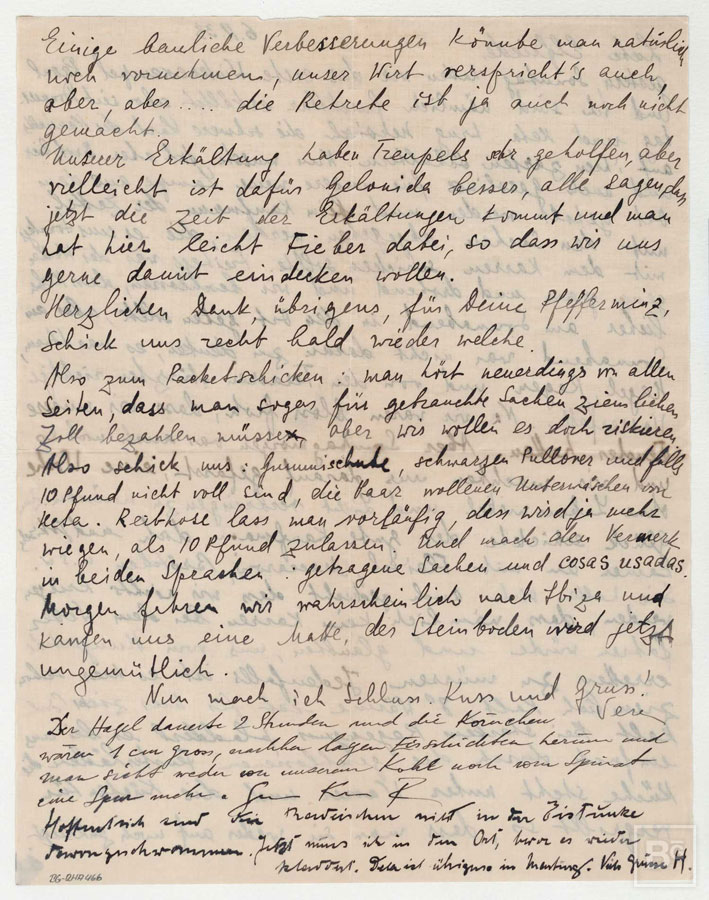 Einige bauliche Verbesserungen könnte man natürlich
noch vornehmen, unser Wirt verspricht's auch,
aber, aber .... die Retrete ist ja auch noch nicht
gemacht.
Unserer Erkältung haben Treupels sehr geholfen, aber
vielleicht ist dafür Gelonida besser, alle sagen, dass
jetzt die Zeit der Erkältungen kommt und man
hat hier leicht Fieber dabei, so dass wir uns
gerne damit eindecken wollen.
Herzlichen Dank, übrigens, für Deine Pfefferminz,
schick uns recht bald wieder welche.
Also zum Packetschicken: man hört neuerdings von allen
Seiten, dass man sogar für gebrauchte Sachen ziemlichen
Zoll bezahlen müsse, aber wir wollen es doch riskieren.
Also schick uns: Gummischuhe, schwarzen Pullover und falls
10 Pfund nicht voll sind, die Paar wollenen Unterwäschen von
Reithose lass man vorläufig, dass wird ja mehr
wiegen, als 10 Pfund zulassen. Und mach den Vermerk
in beiden Sprachen: getragene Sachen und cosas usadas.
Morgen fahren wir wahrscheinlich nach Ibiza und
kaufen uns eine Matte, der Steinboden wird jetzt
ungemütlich.
Nun mach ich Schluss. Kuss und Gruss!
Vera
Der Hagel dauerte 2 Stunden und die Körnchen
waren 1 cm gross, nachher lagen Eisschichten herum und
man sieht weder von unserem Kohl noch vom Spinat
eine Spur mehr.
Hoffentlich sind die nicht in der
davongeschwommen. Jetzt muss ich in den Ort, bevor es wieder
ist übrigens in Viele Grüsse H.
BG-RHA 466
BG